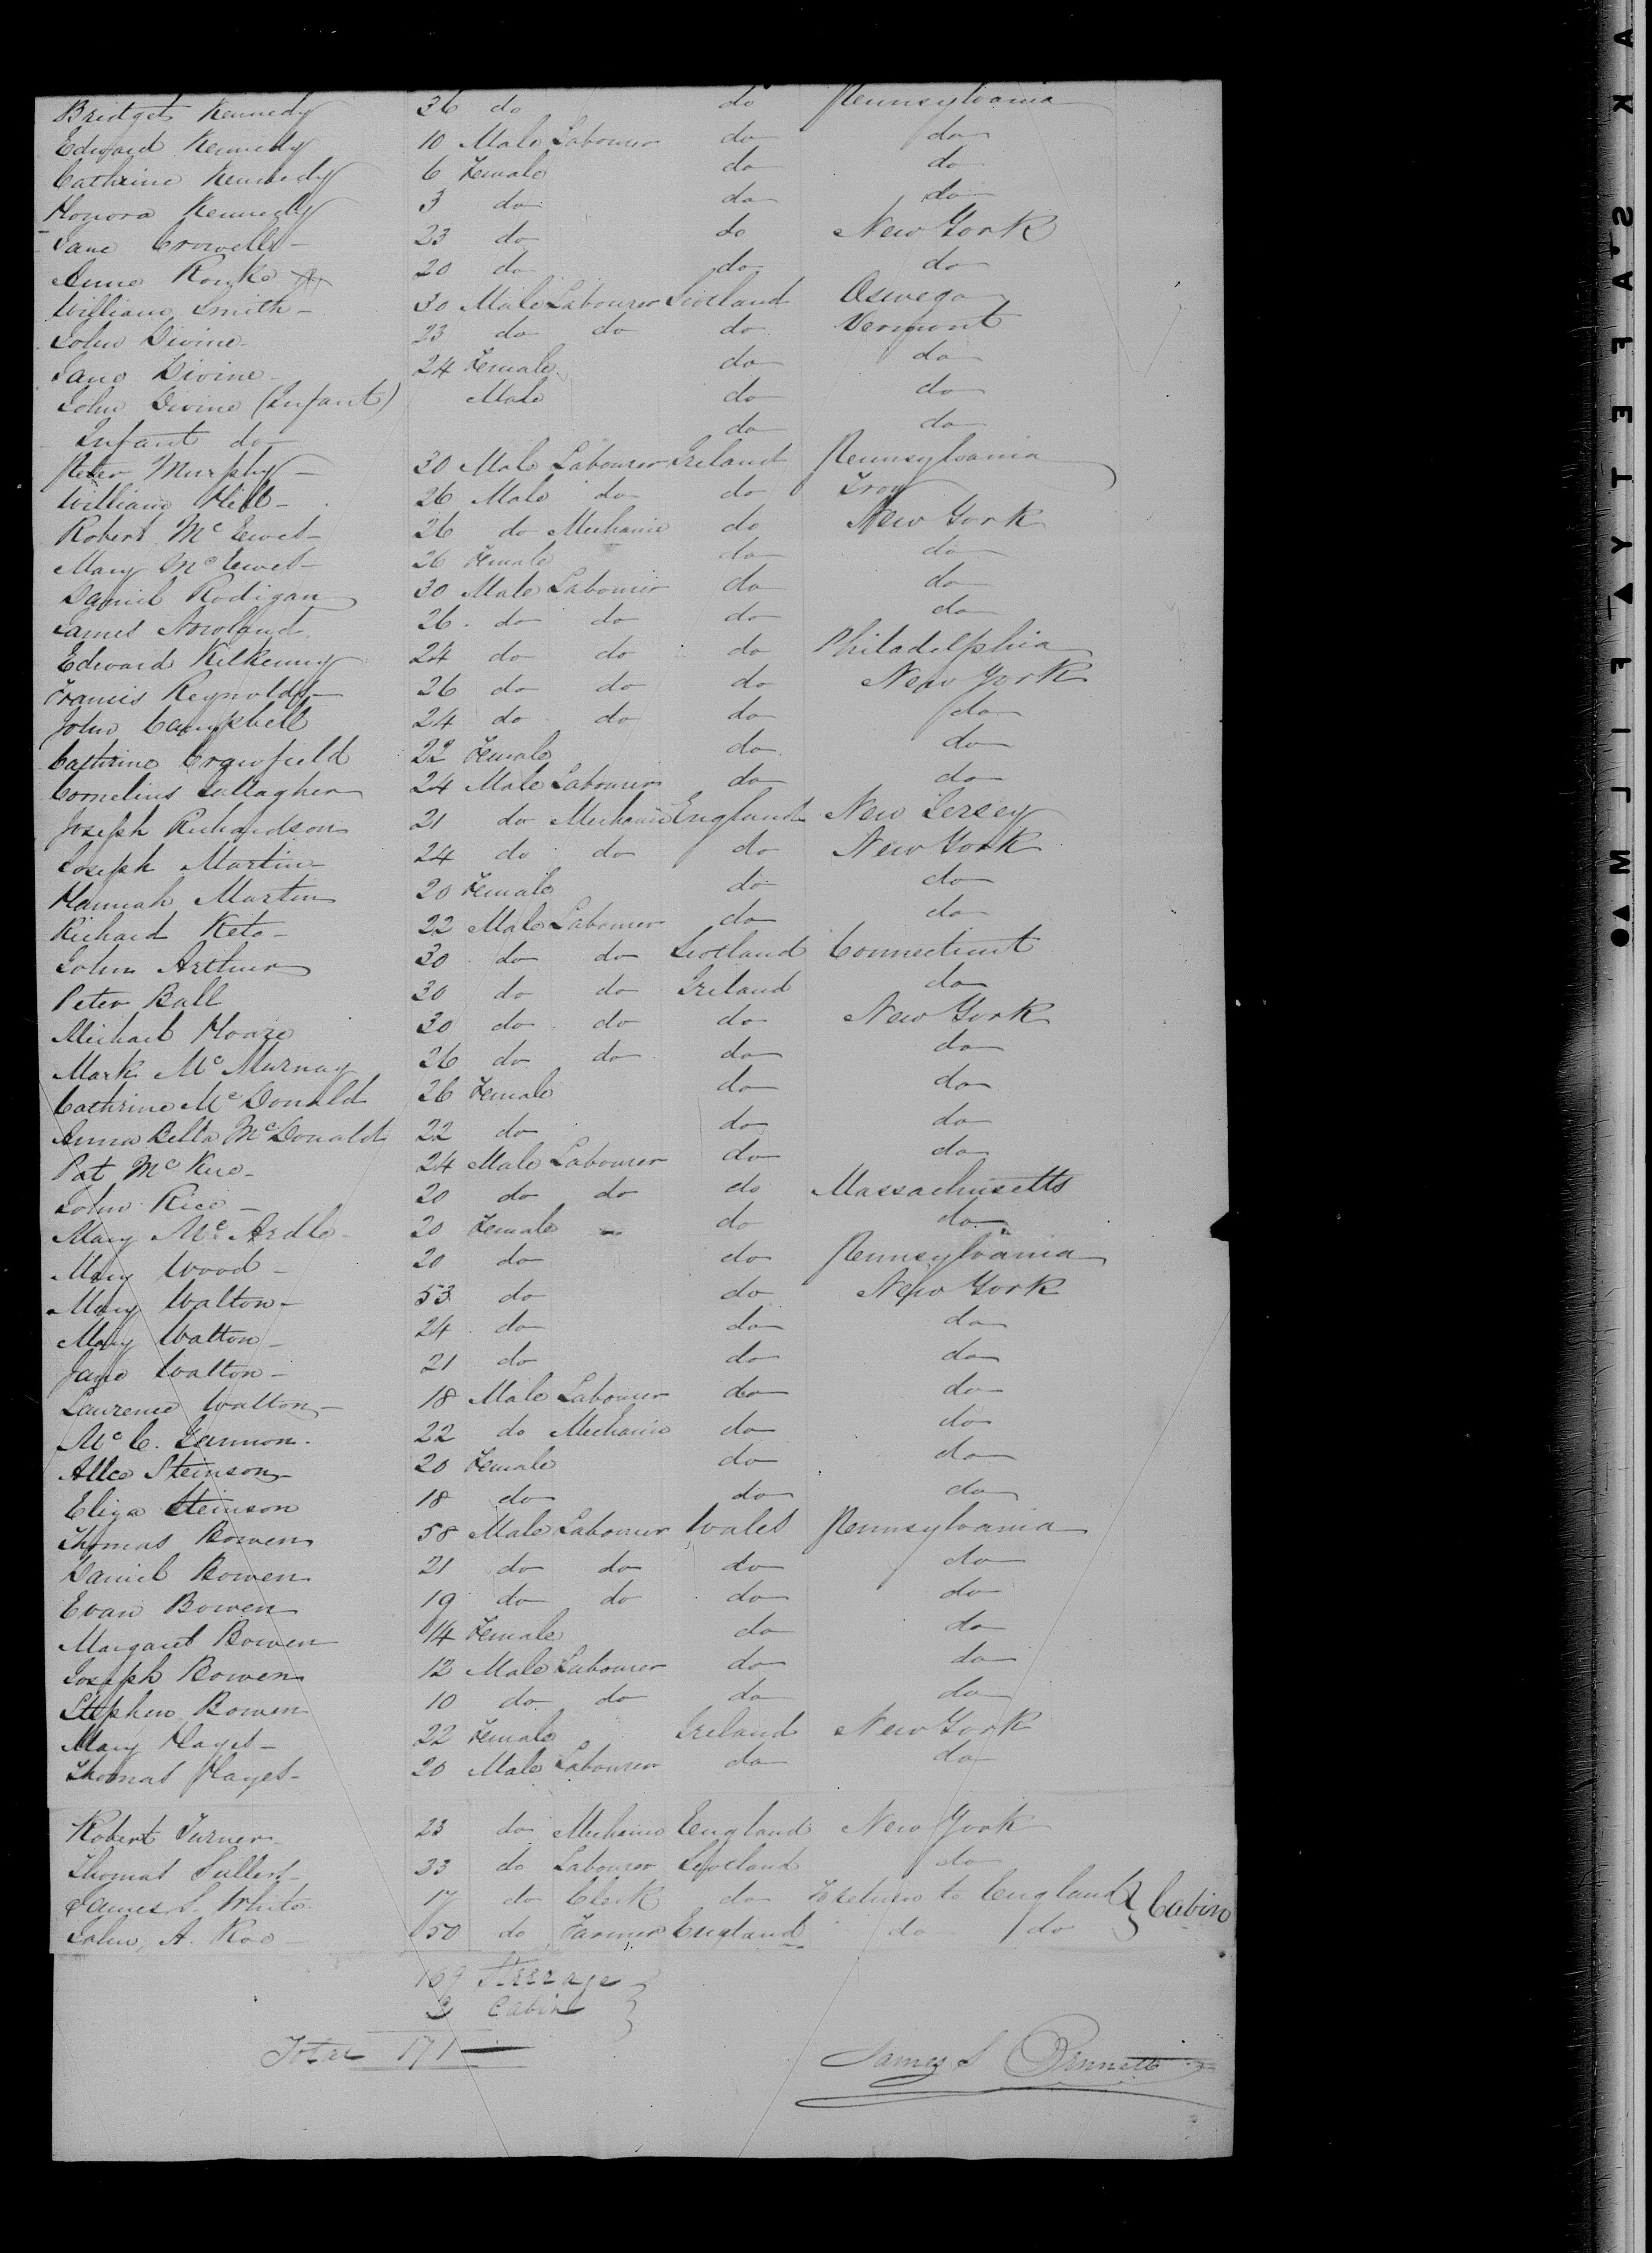 Bridget Kennedy 36 do do Pennsylvania
Edward Kennedy 10 Male Labourer do do
Cathrine Kennedy 6 Female do do
Honora Kennedy 3 do do do
Jane Crowell 23 do do New York
Anne 20 do do do
William Smith 30 Male Labourer Scotland Oswego
John Divine 23 do do do Vermont
Jane Divine 24 Female do do
John Divine (Infant) Male do do
Infant do do do
Peter Murphy 30 Male Labourer Ireland Pennsylvania
William Hill 26 Male do do Troy
Robert 26 do Mechanic do New York
Mary 26 Female do do
Daniel Rodigan 30 Male Labourer do do
James 26 do do do do
Edward Kilkenny 24 do do do Philadelphia
Francis Reynolds 26 do do do New York
John Campbell 24 do do do do
Cathrine 22 Female do do
Cornelius Gallagher 24 Male Labourer do do
Joseph Richardson 21 do Mechanic England New Jersey
Joseph Martin 24 do do do New York
Hannah Martin 20 Female do do
Richard 22 Male Labourer do do
John Arthur 30 do do Scotland Connecticut
Peter Ball 30 do do Ireland do
Michael 30 do do do New York
Mark 26 do do do do
Cathrine McDonald 26 Female do do
Anna Bella McDonald 22 do do do
Pat 24 Male Labourer do do
John Rice 20 do do do Massachusetts
Mary McArdle 20 Female do do
Mary Wood 20 do do Pennsylvania
Mary Walton 53 do do New York
Mary Walton 24 do do do
Jane Walton 21 do do do
Laurence Walton 18 Male Labourer do do
Mc C. 22 do Mechanic do do
Alice Steinson 20 Female do do
Eliza Steinson 18 do do do
Thomas Bowen 58 Male Labourer Wales Pennsylvania
Daniel Bowen 21 do do do do
Evan Bowen 19 do do do do
Margaret Bowen 14 Female do do
Joseph Bowen 12 Male Labourer do do
Stephen Bowen 10 do do do do
Mary Hayes 22 Female Ireland New York
Thomas Hayes 20 Male Labourer do do
Robert Turner 23 do Mechanic England New York
Thomas 23 do Labourer Scotland do
James S. White 17 do Clerk do To return to England } Cabin
John A. Roe 50 do Farmer England do do
169 Steerage
2 Cabin
Total 171
James S Bennett